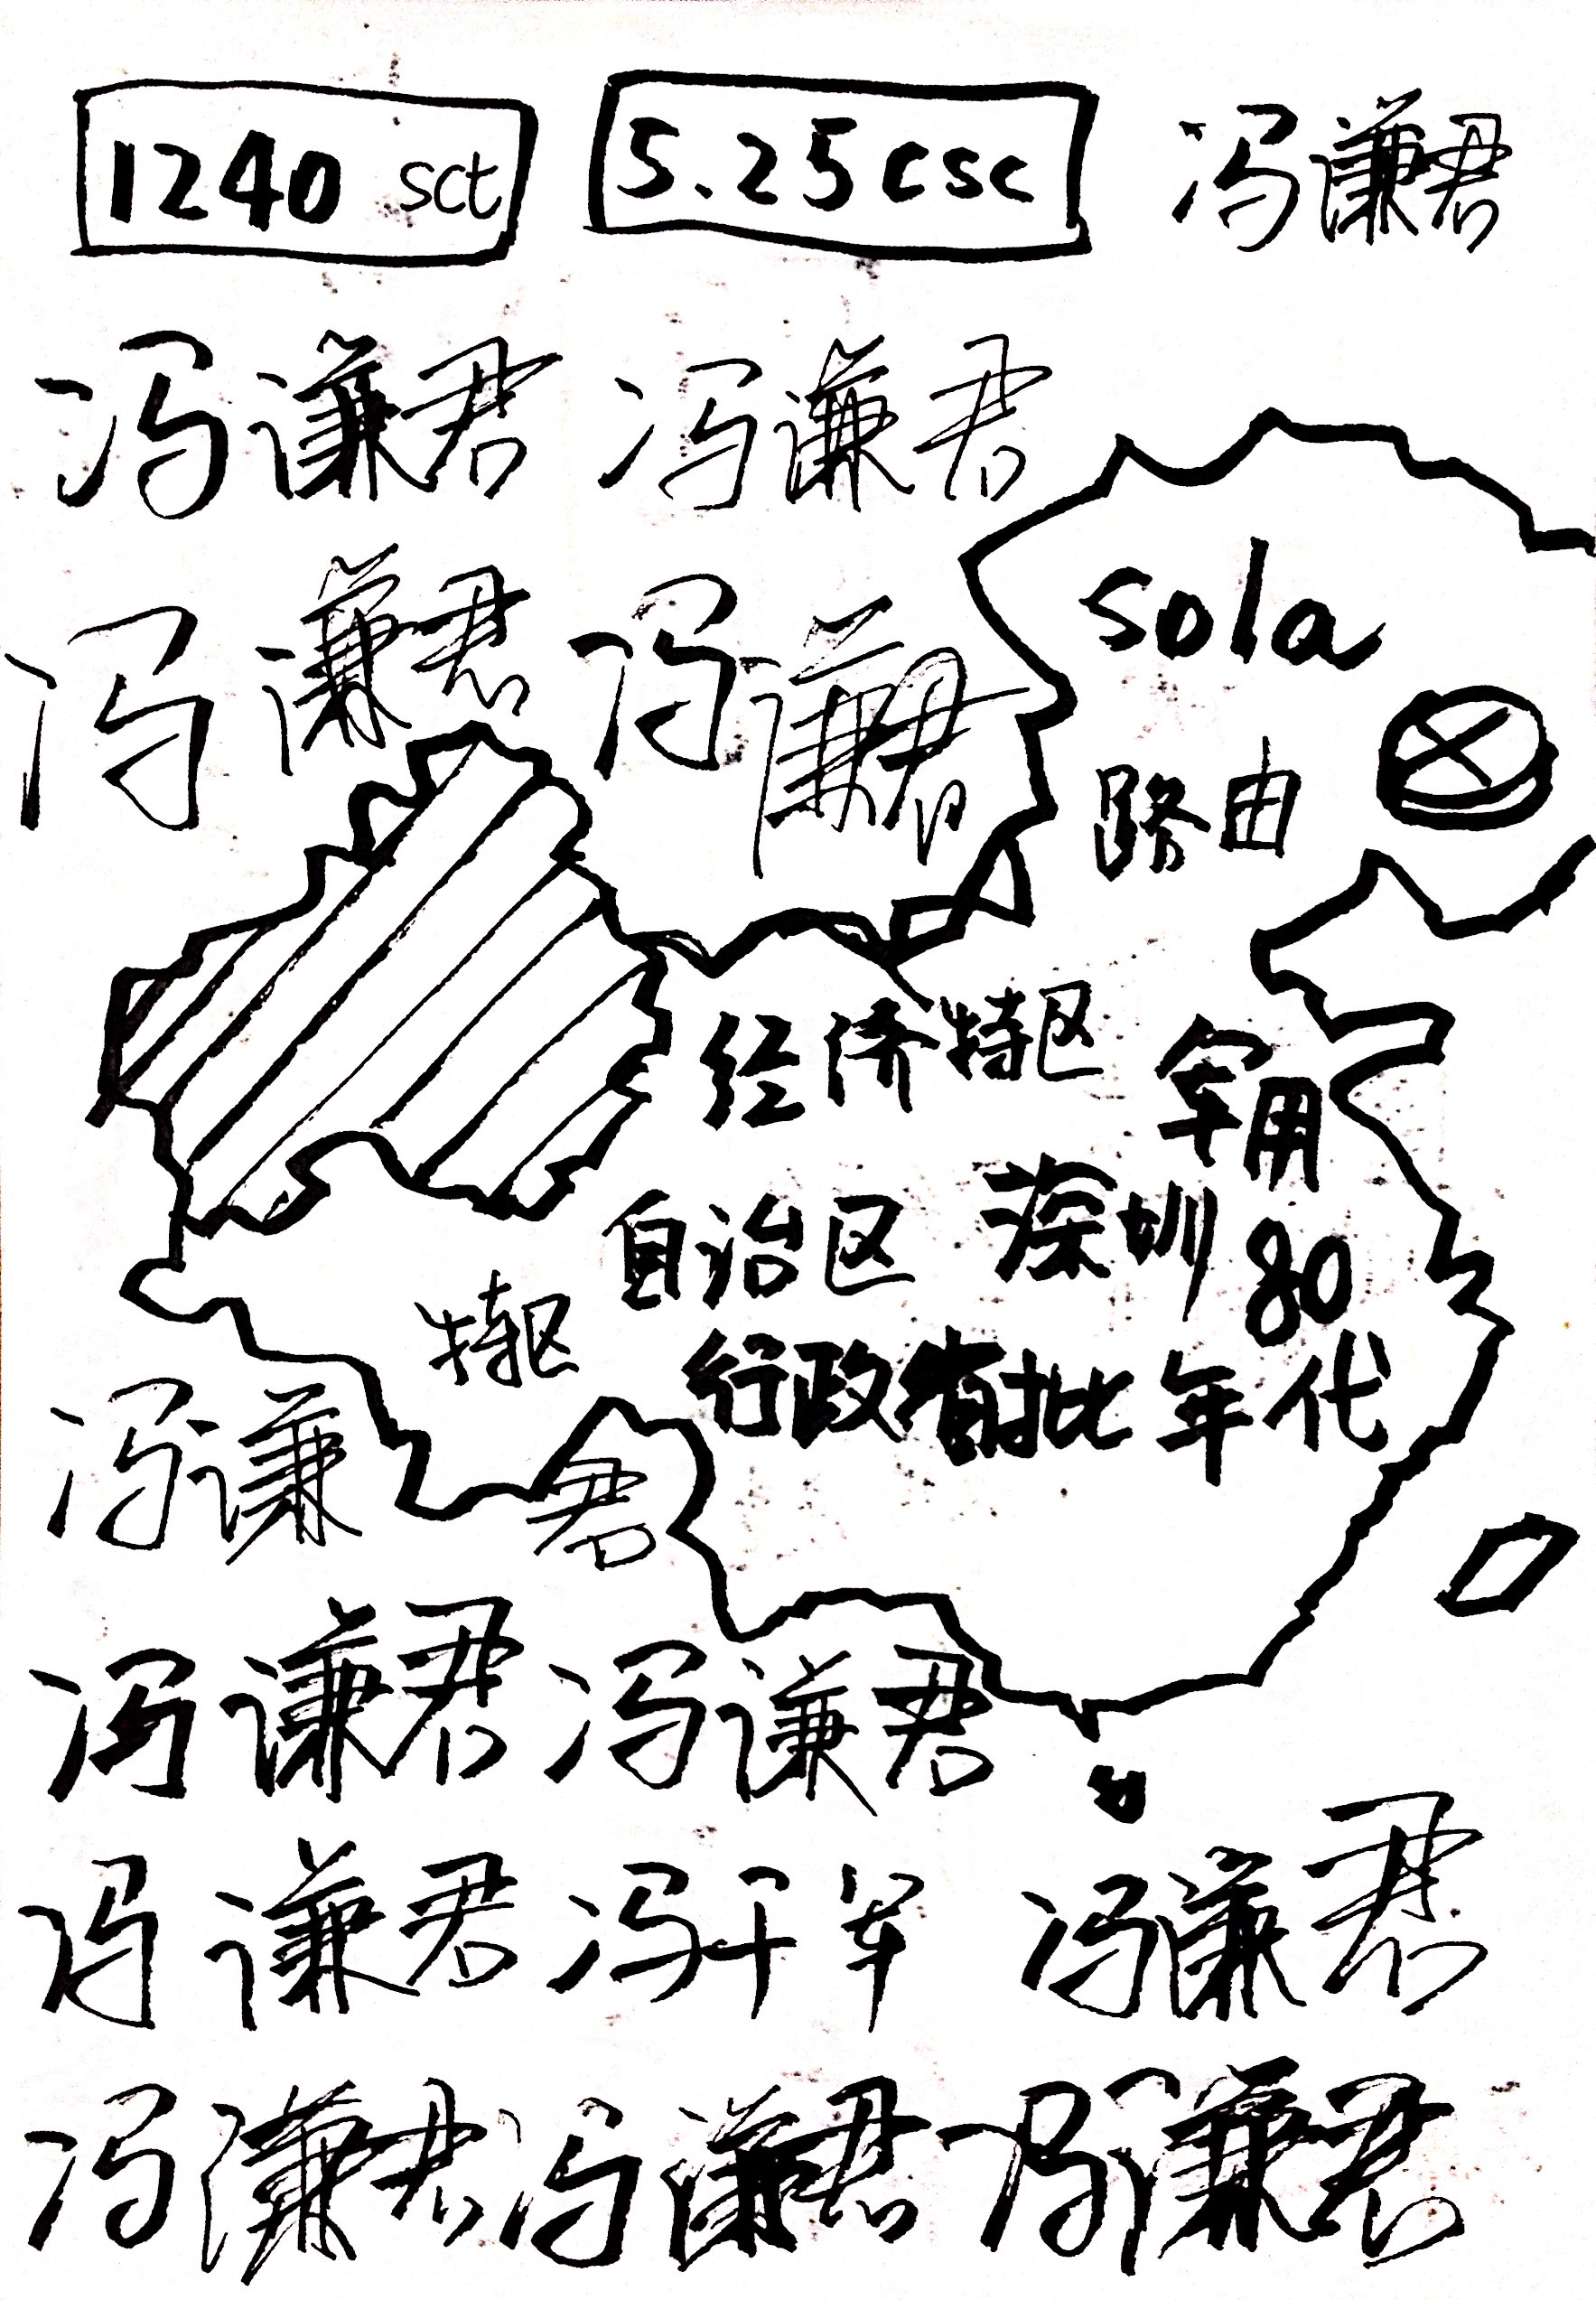 1240 sct 5.25csc 冯谦君
冯谦君 冯谦君
sola
冯谦君 冯谦君
路由
经济特区 军用
自治区 深圳 80
特区 行政省批 年代
冯谦君
冯谦君 冯谦君
冯谦君 冯千军 冯谦君
冯谦君 冯谦君 冯谦君